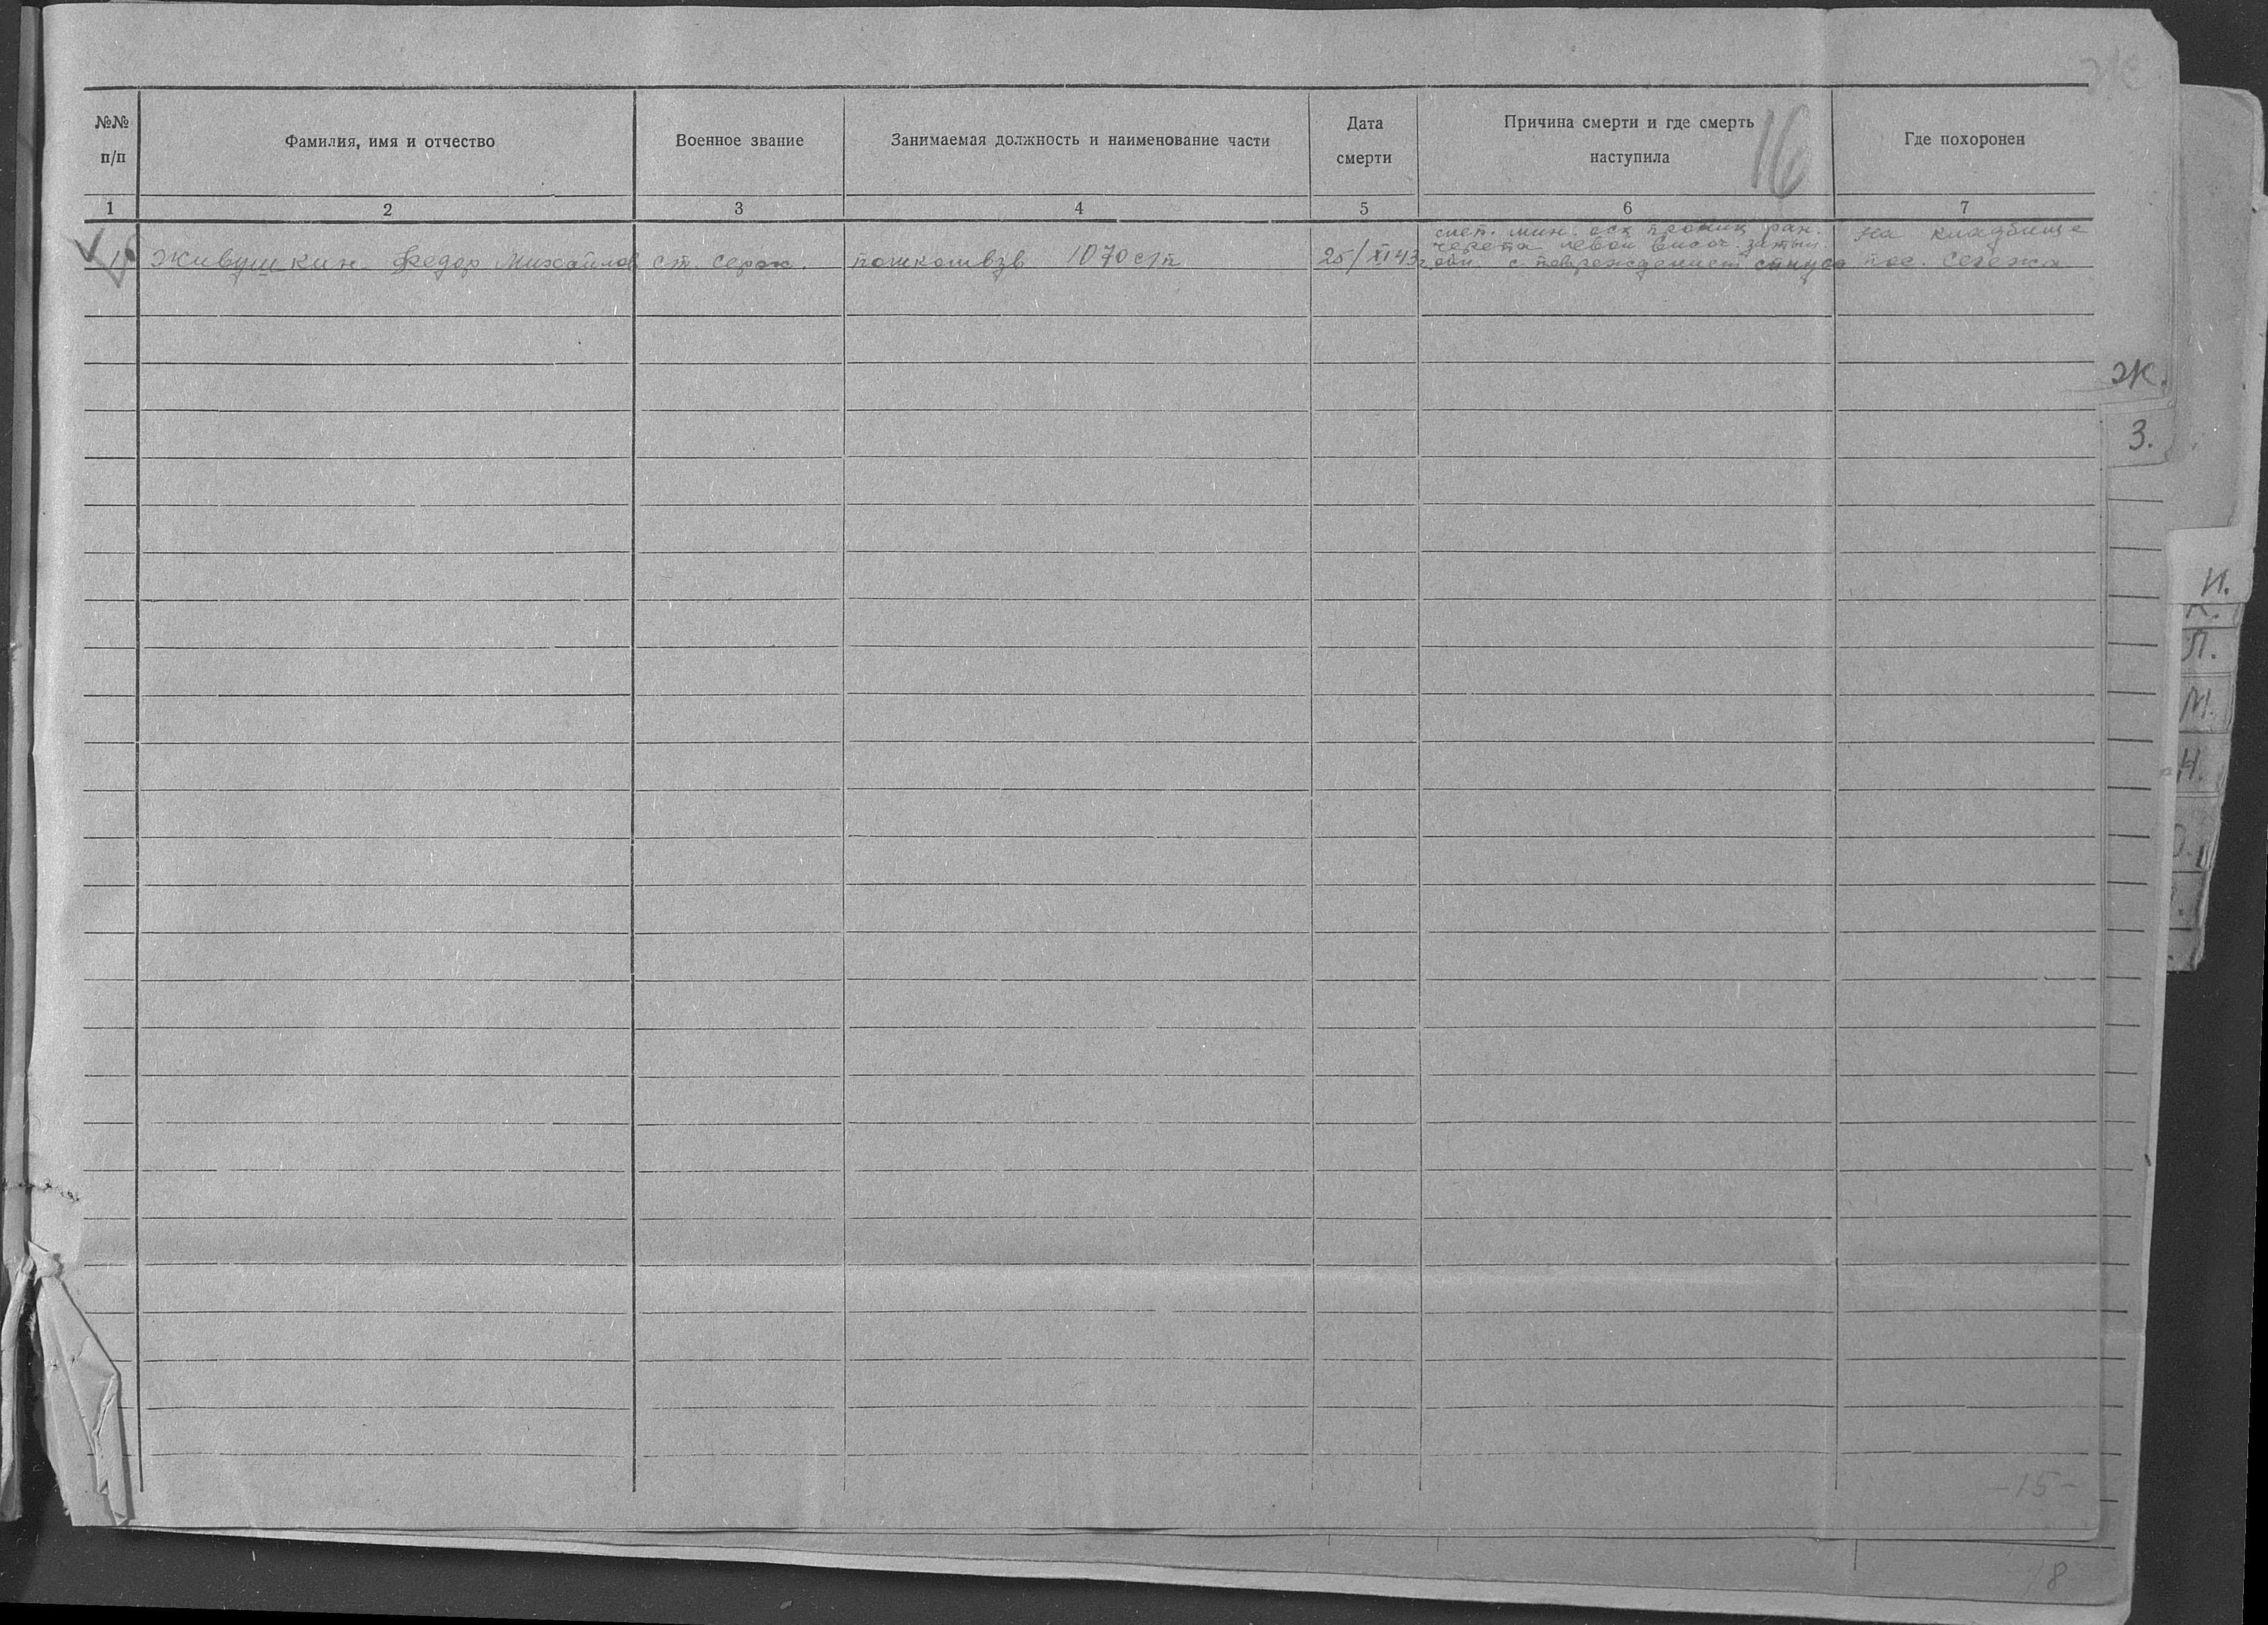 Ж
№№ п/п
Фамилия, имя и отчество
Военное звание
Занимаемая должность и наименование части
Дата смерти
Причина смерти и где смерть наступила
16
Где похоронен
1 2 3 4 5 6 7
1 Живушкин Федор Михайлов ст. серж. помкомвзв 1070 сп 25/XI 43г
слеп. мин. оск. прониц ран.
черепа левой височ. затыл.
обл. с повреждением синуса
На кладбище
пос. Сележа
Ж.
З.
И.
К.
Л.
М.
Н.
О.
-15-
18